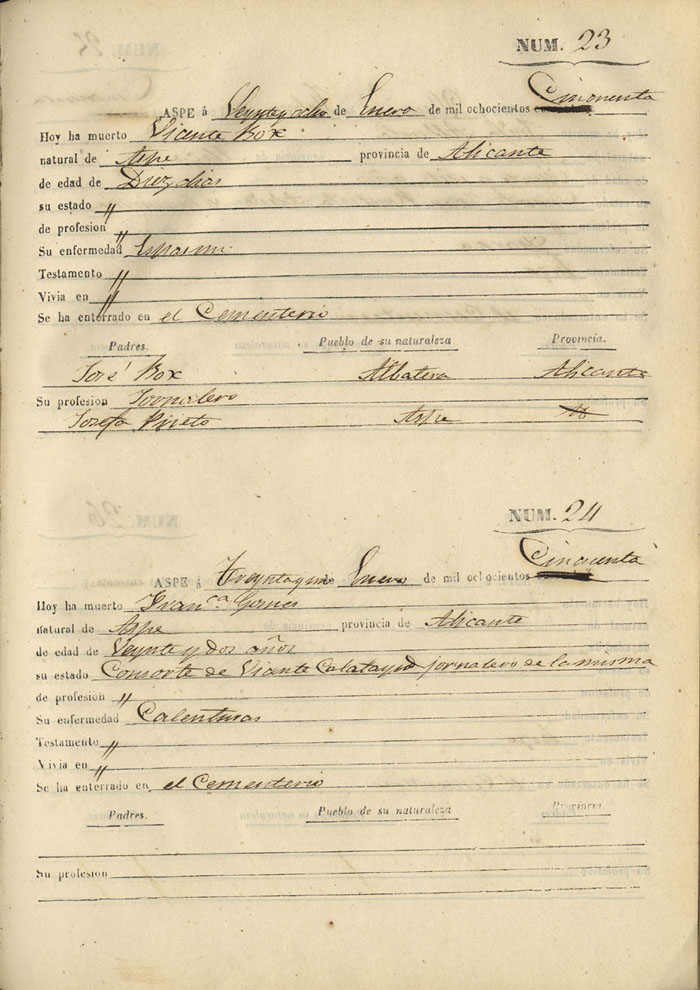 NUM. 23
ASPE á Veynteyocho de Enero de mil ochocientos Cinquenta
Hoy ha muerto Vicente Box
natural de Aspe provincia de Alicante
de edad de Diez dias
su estado "
de profesion "
Su enfermedad Espasmo
Testamento "
Vivia en "
Se ha enterrado en el Cementerio
Padres. Pueblo de su naturaleza Provincia.
José Box Albatera Alicante
Su profesion Jornalero
Josefa Aspe
NUM. 24
ASPE á Treyntayuno Enero de mil ochocientos Cinquenta
Hoy ha muerto Fran.ca Gomes
natural de Aspe provincia de Alicante
de edad de Veynte y dos años
su estado Consorte de Visente Calatayud jornalero de la misma
de profesion "
Su enfermedad Calenturas
Testamento "
Vivia en "
Se ha enterrado en el Cementerio
Padres. Pueblo de su naturaleza Provincia.
Su profesion